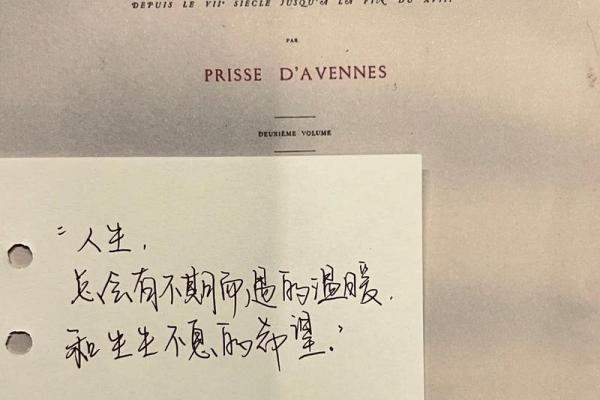 DEPUIS LE VIIᵉ SIÈCLE JUSQU'À LA FIN DU XVIIIᵉ
PAR
PRISSE D'AVENNES
DEUXIÈME VOLUME
"人生,
总会有不期而遇的温暖.
和生生不息的希望."